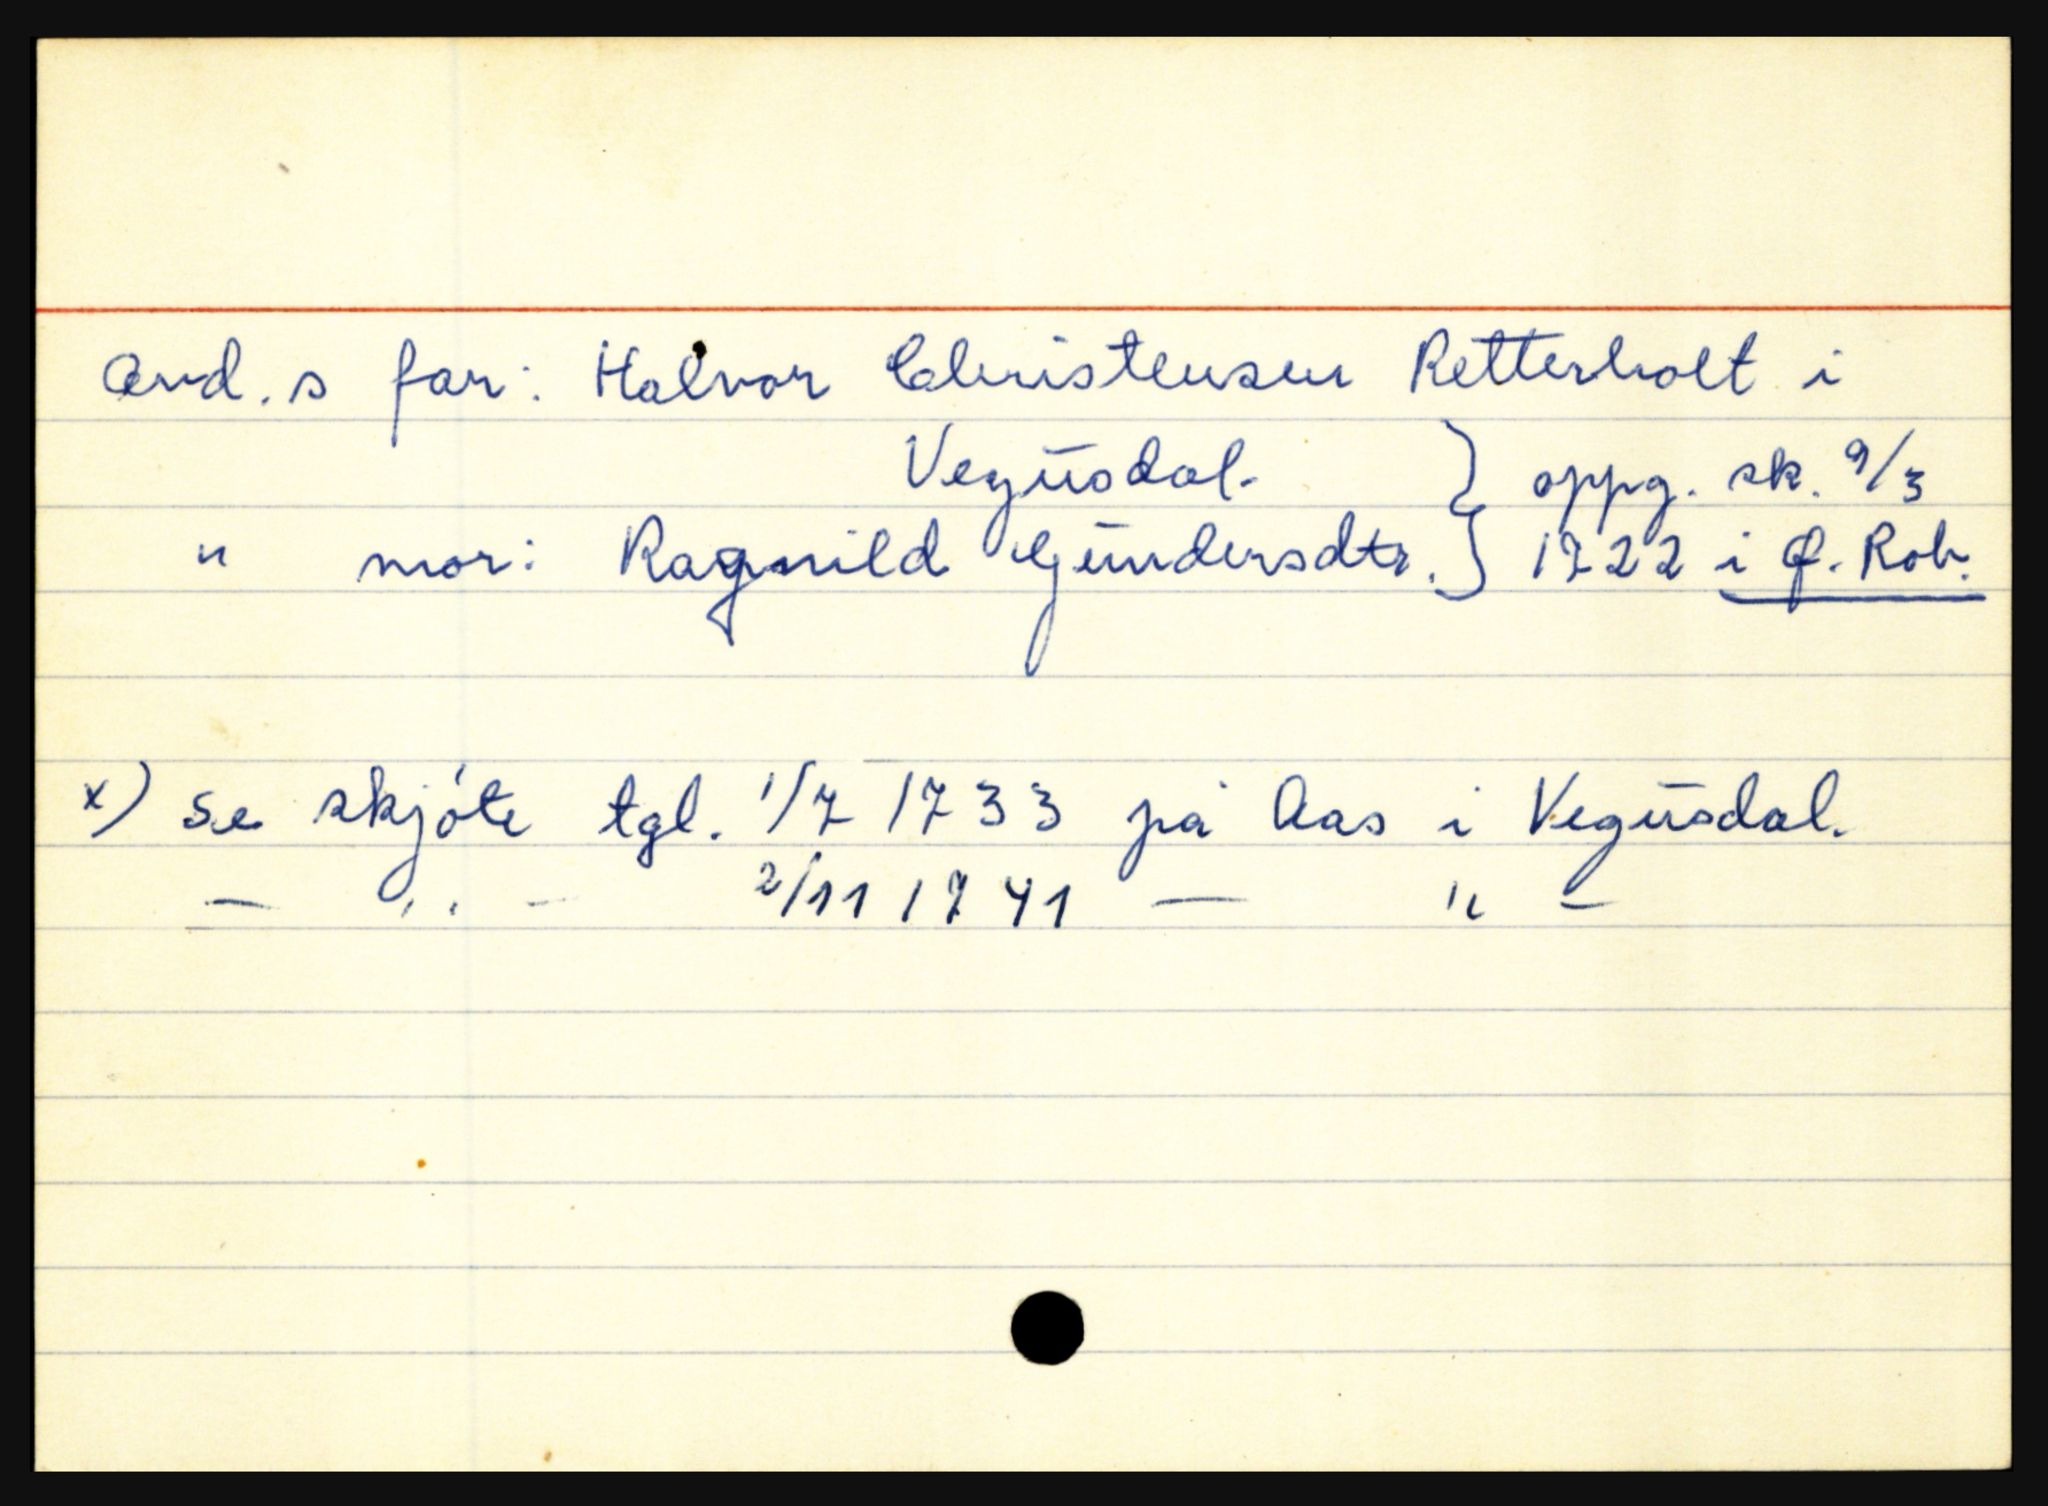 avd.s far: Halvor Christensen Retterholt i
Vegusdal. } oppg. sk. 9/3
" mor: Ragnild Gundersdtr. } 1722 i Ø. Rob.
x) se skjöte tgl. 1/7 1733 på Aas i Vegusdal.
— " — 2/11 1741 — " —